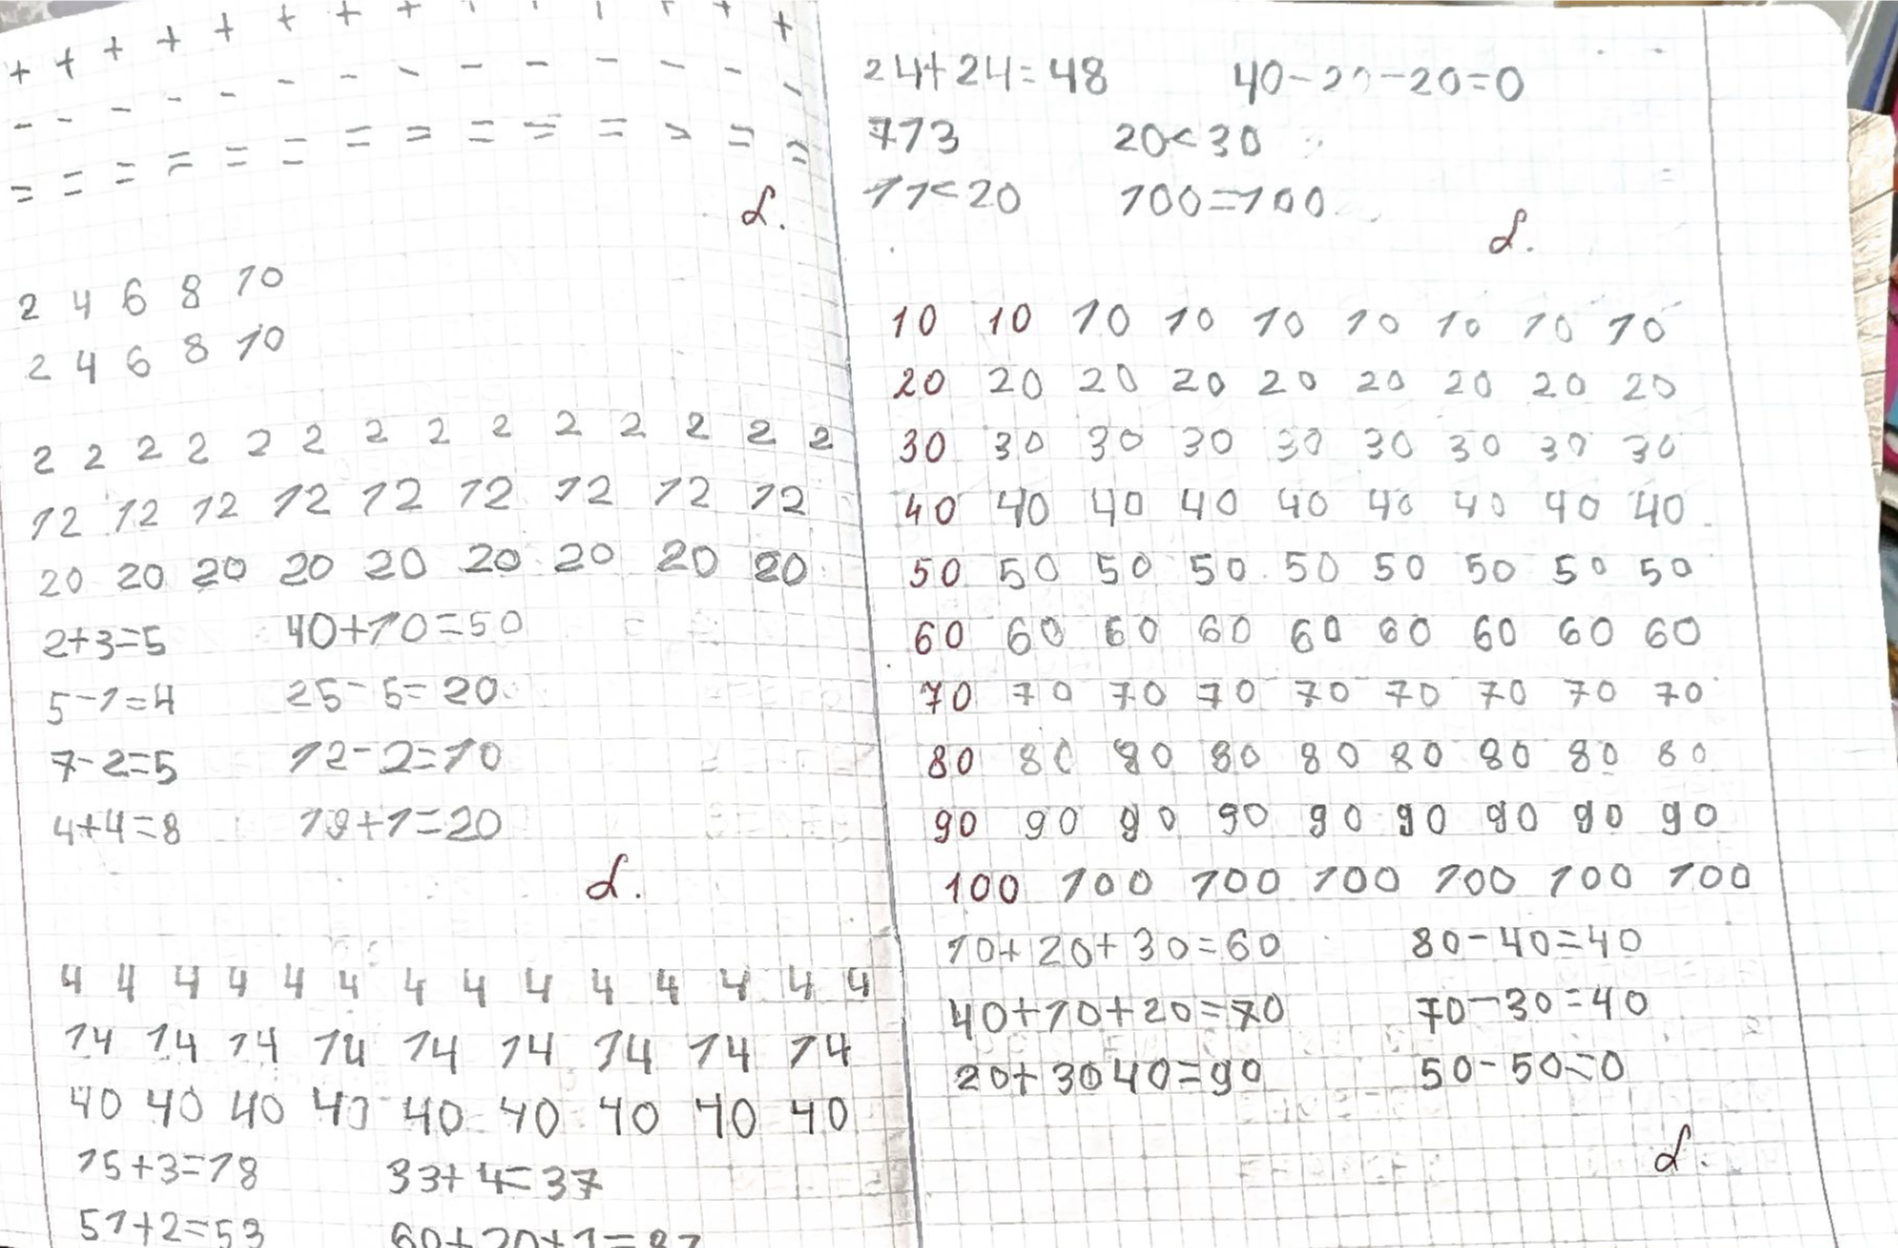 + + + + + + + + + + + + + +
- - - - - - - - - - - - - -
= = = = = = = = = = = = = =
d.
2 4 6 8 10
2 4 6 8 10
2 2 2 2 2 2 2 2 2 2 2 2 2 2
12 12 12 12 12 12 12 12 12
20 20 20 20 20 20 20 20 20
2+3=5 40+10=50
5-1=4 25-5=20
7-2=5 12-2=10
4+4=8 19+1=20
d.
4 4 4 4 4 4 4 4 4 4 4 4 4 4
14 14 14 14 14 14 14 14 14
40 40 40 40 40 40 40 40 40
15+3=18 33+4=37
51+2=53
24+24=48 40-20-20=0
773 20<30
11<20 100=100
d.
10 10 10 10 10 10 10 10 10
20 20 20 20 20 20 20 20 20
30 30 30 30 30 30 30 30 30
40 40 40 40 40 40 40 40 40
50 50 50 50 50 50 50 50 50
60 60 60 60 60 60 60 60 60
70 70 70 70 70 70 70 70 70
80 80 80 80 80 80 80 80 80
90 90 90 90 90 90 90 90 90
100 100 100 100 100 100 100
10+20+30=60 80-40=40
40+10+20=70 70-30=40
20+3040=90 50-50=0
d.